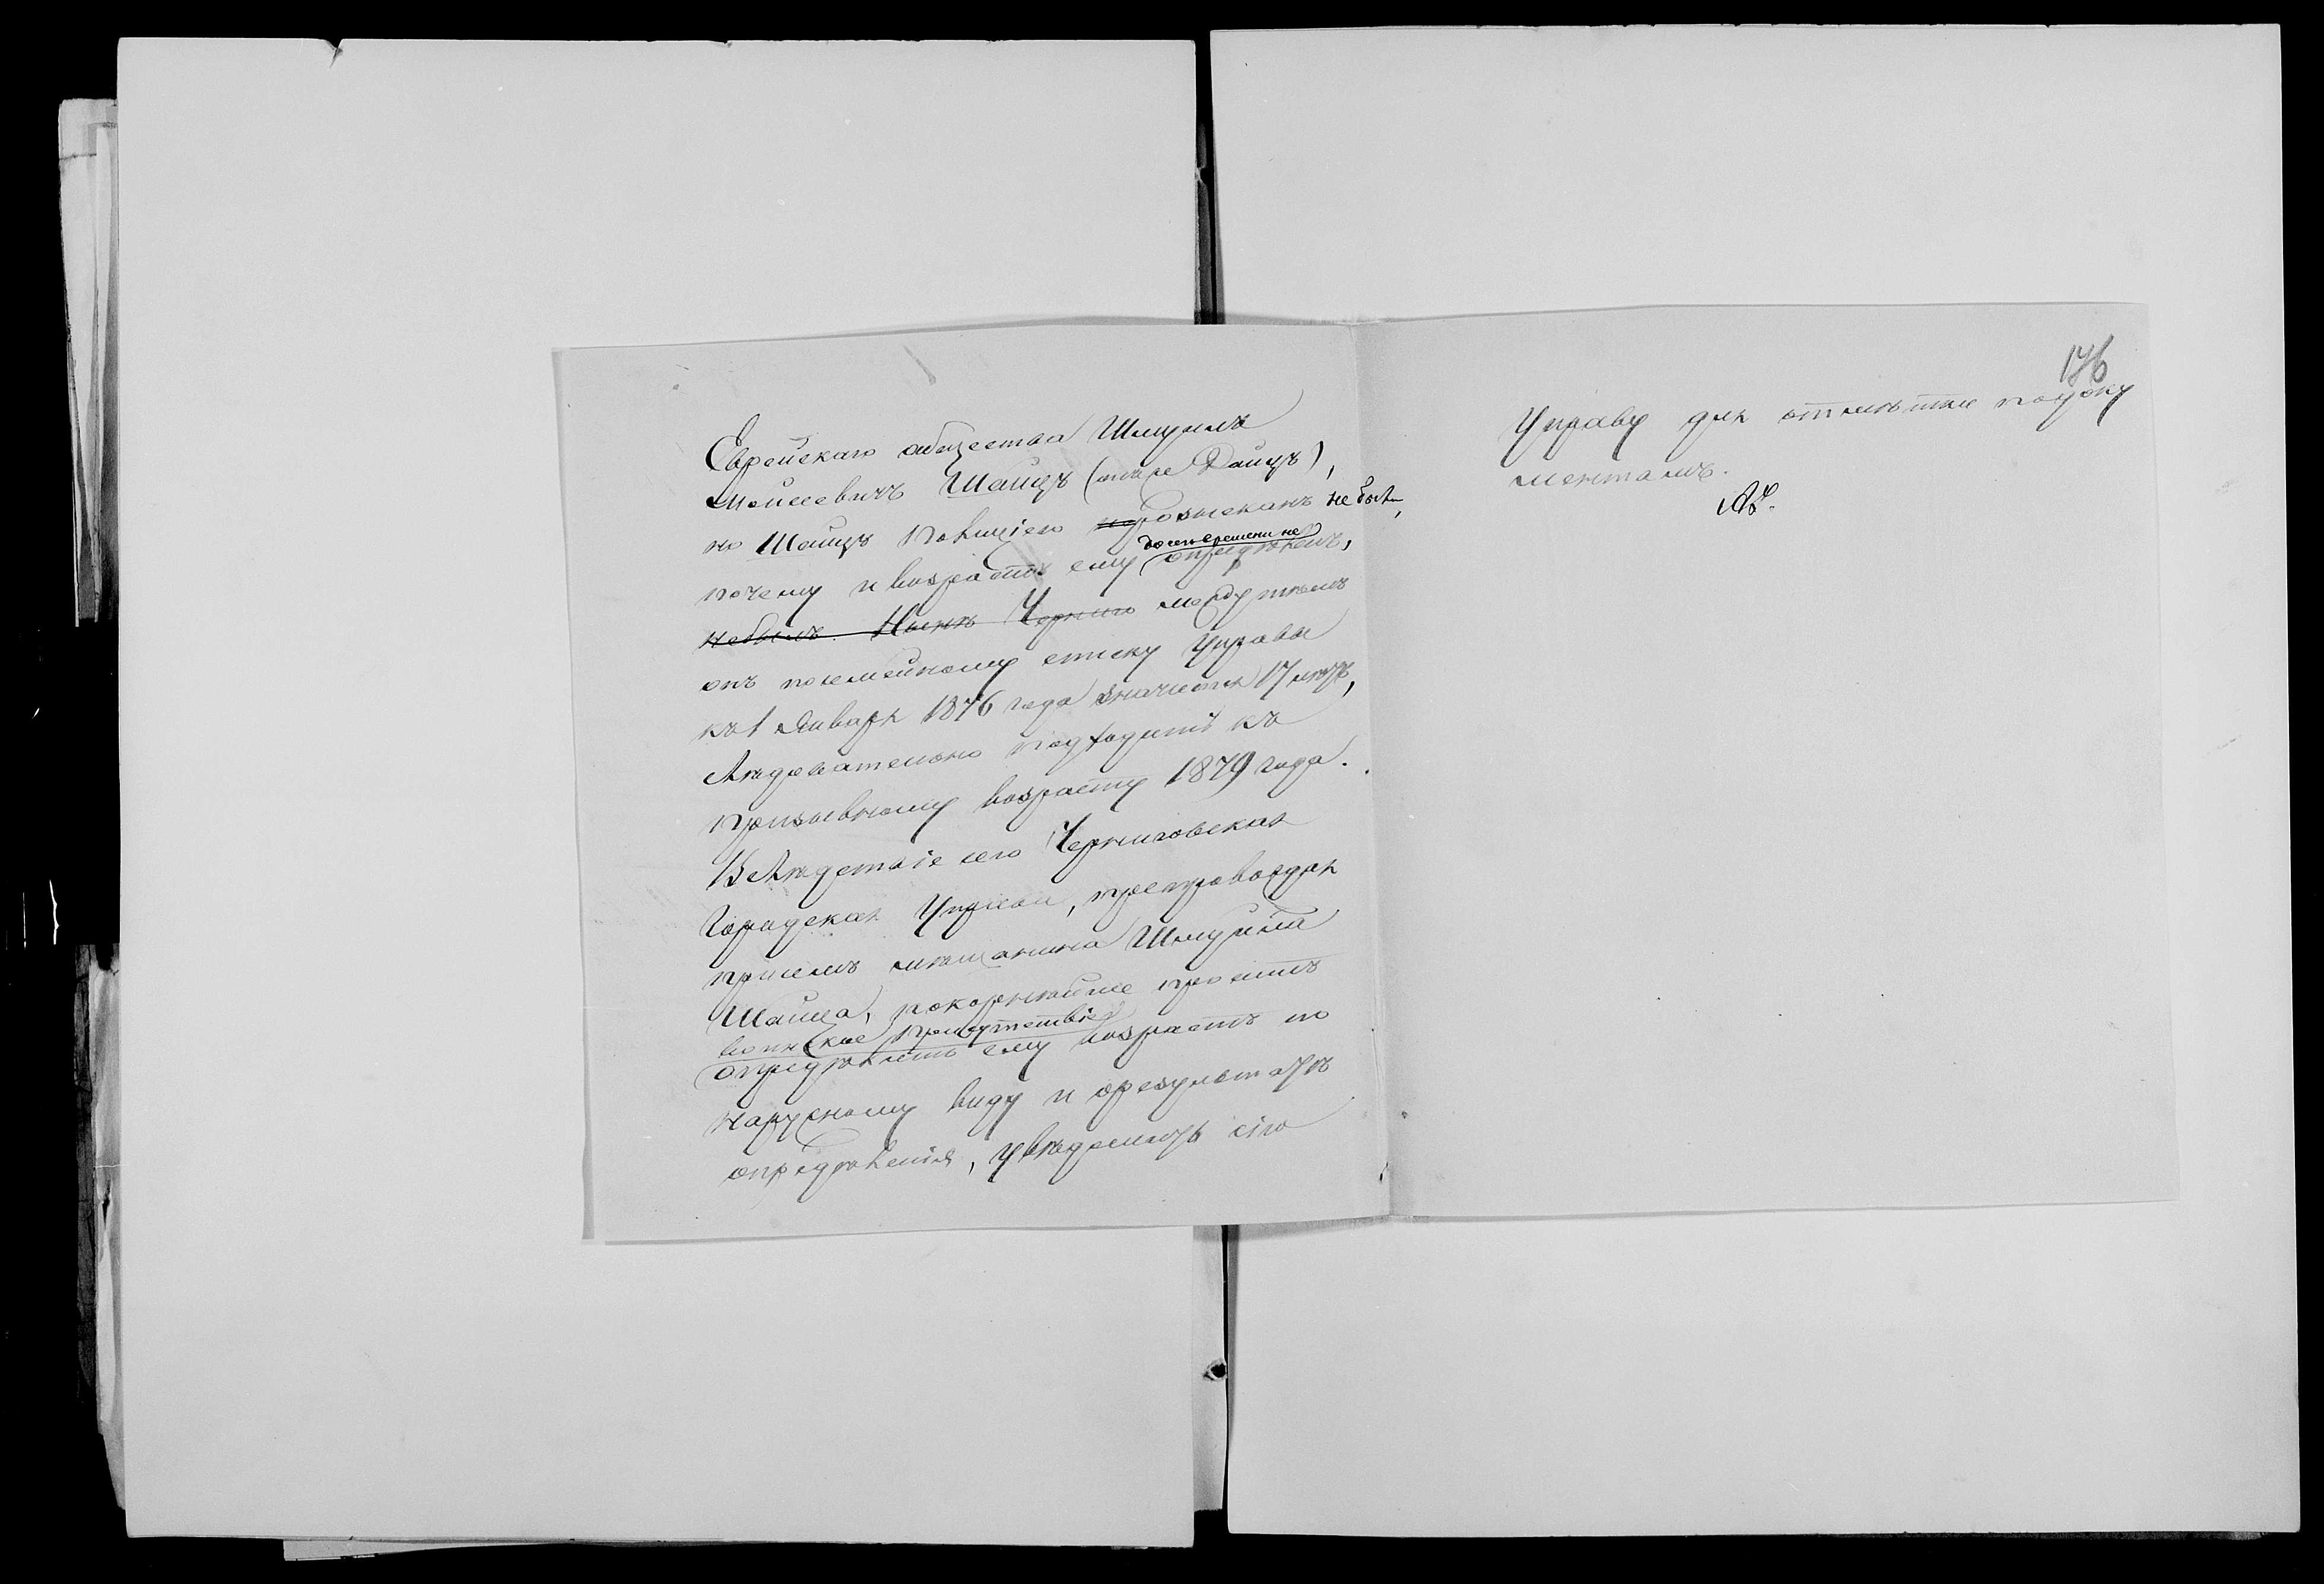 Еврейскаго общества Шмуилъ
Мойшевичъ Шайцъ (онъ же Дайцъ),
но Шайцъ Полиціею розысканъ не былъ,
почему и возрастъ ему до сего времени не опредѣленъ,
небылъ. Нынѣ Черниго между тѣмъ
онъ посемейному списку Управы
къ 1 Января 1876 года значится 17 лѣтъ,
слѣдовательно подходитъ къ
призывному возрасту 1879 года.
Вслѣдствіе сего Черниговская
Городская Управа, препровождая
при семъ мѣщанина Шмуила
Шайца, покорнѣйше проситъ
воинское Присутствіе
опредѣлить ему возрастъ по
наружному виду и о результатѣ
опредѣленія, увѣдомить сію
176
Управу для отмѣтки по доку
ментамъ.